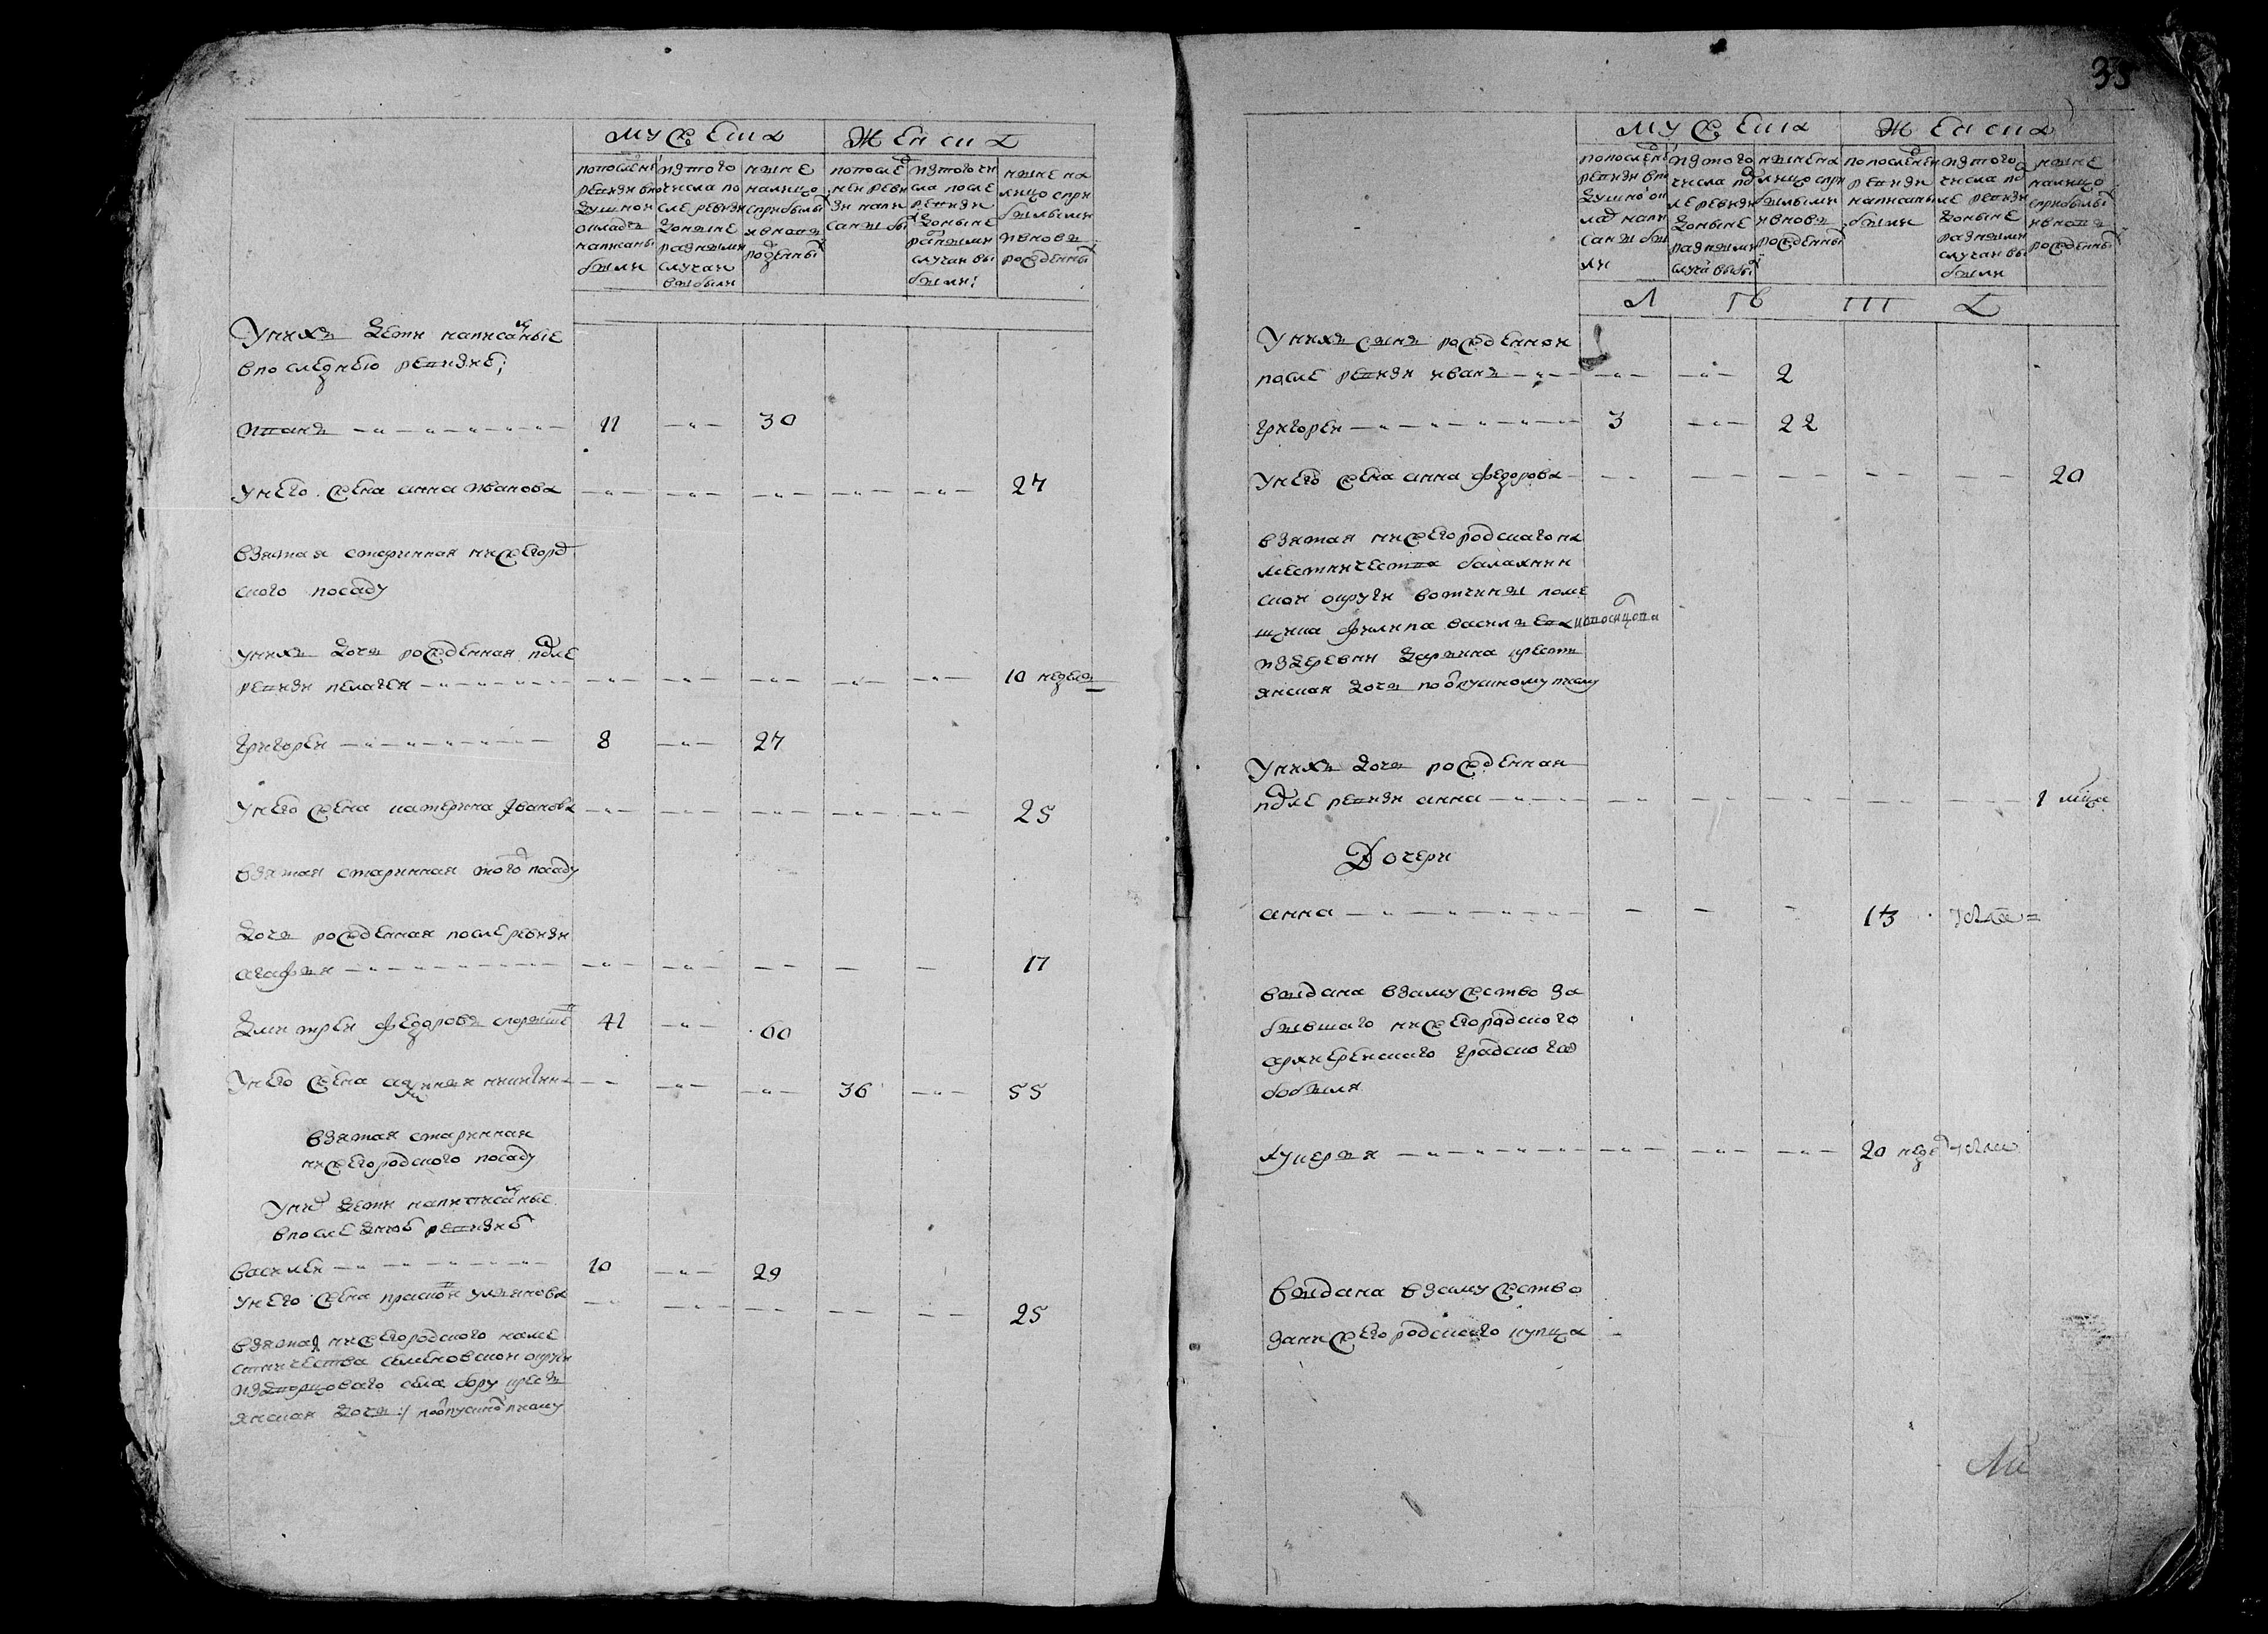 Мужеска Женска
попослене ревизи в подушной окладъ написаны были
изтого числа после ревизи доныне разными случаи выбыли
ныне налицо сприбылы и вновь рожденны
попосленей ревизи написаны бы
изтого числа после ревизи доныне разными случаи выбыли
ныне налицо сприбылыми ивновь рожденны
Унихъ дети написаные
впоследнею ревизиe;
Иванъ 11 30
унего жена анна Иванова 27
взятая старинная нижегород
скаго посаду
унихъ дочь рожденная после
ревизи пелагея 10 недель
Григореи 8 27
унего жена катерина Иванова 25
взятая старинная того посаду
дочь рожденная послеревизи
агафья 17
Дмитреи федоровъ 41 60
Унего жена 36 55
взятая старинная
нижегородского посаду
Уних дети написаные
впоследнюю ревизию
василеи 10 29
унего жена прасковя ульянова 25
взятая нижегородского наме
стничества семеновскои округи
издворцоваго села бору крестъ
янская дочь попускному писму
35
Мужеска Женска
попослене ревизи вподушной оклад написаны были
изтого числа по ле ревизи доныне разными случа выбы
нынена лицо прибылыми ивновь рожденны
попоследнеи ревизи написаны были
изтого числа по ле ревизи доныне разными случаи выбыли
ныне налицо сприбылы ивновь рожденны
Унихъ сынъ рожденнои
после ревизи иванъ 2
григореи 3 22
унего жена анна федорова 20
взятая нижегородскаго на
местничества балахнин
скои округи вотчины поме
щика филипа василева
издеревни крестъ
янская дочь поопускному писму
Унихъ дочь рожденная
после ревизи анна 1 мца
Дочери
анна 13
выдана взамужество за
бывшаго нижегородского
архиереискаго градского
бобыля
лукерья 20 неде
выдана взамужество
занижегородскаго купца